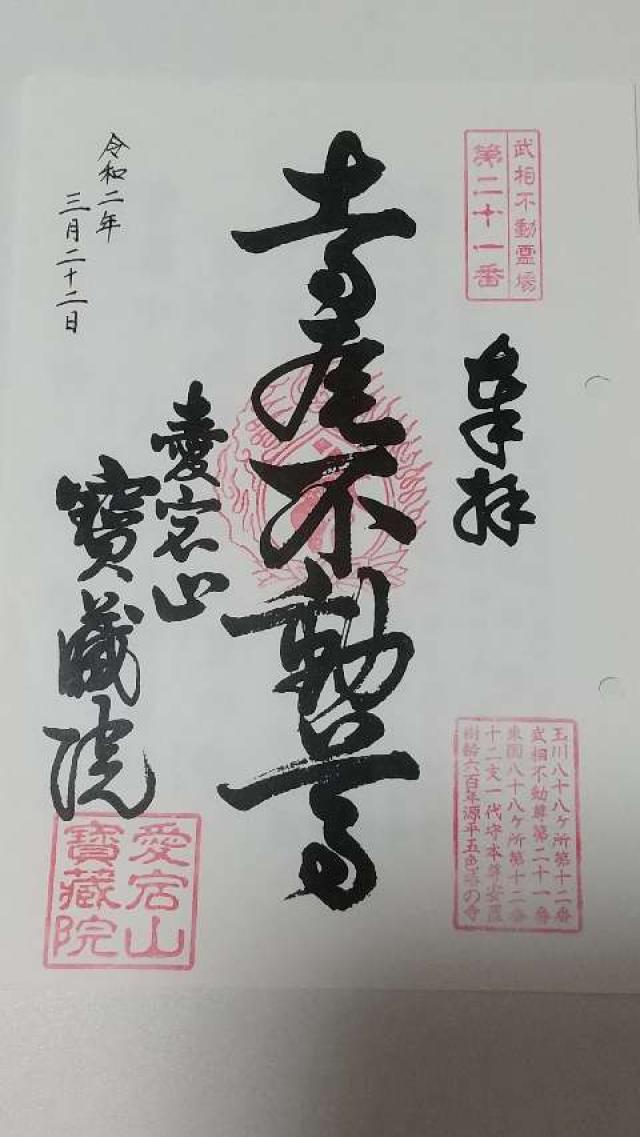 武相不動霊場
第二十一番
奉拝
高尾不動尊
愛宕山
寶蔵院
令和二年
三月二十二日
玉川八十八ケ所第十二番
武相不動尊第二十一番
東国八十八ケ所第十二番
十二支一代守本尊安置
樹齢六百年源平五色の寺
愛宕山
寶蔵院